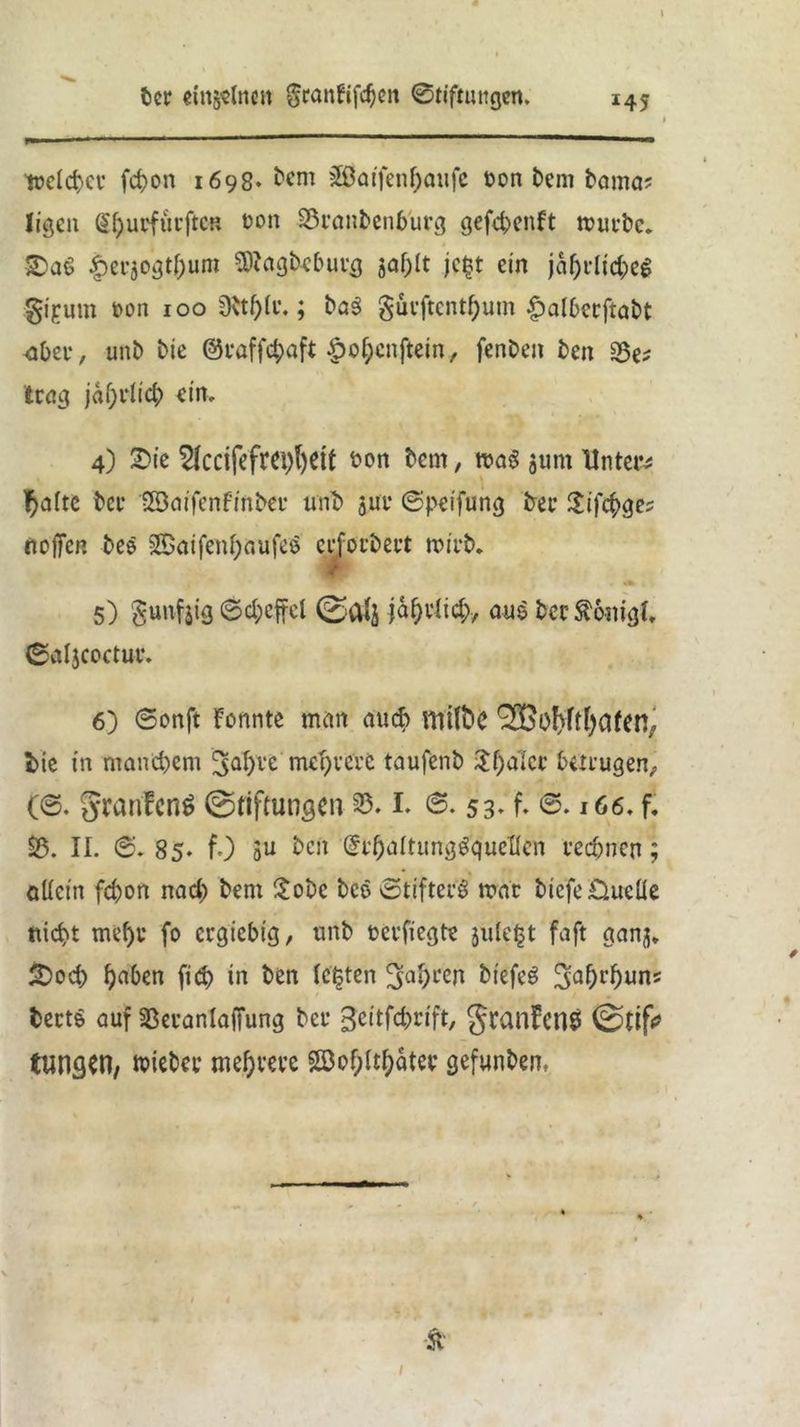 der einzelnen Frankischen Stiftungen. 145
welcher schon 1698. dem Waisenhause von dem dama⸗
ligen Churfürsten von Brandenburg geschenkt wurde.
Das Herzogthum Magdeburg zahlt jetzt ein jährliches
Fixum von 100 Rthlr.; das Fürstenthum Halberstadt
aber, und die Graffschaft Hohenstein, senden den Be⸗
trag jährlich ein.
4) Die Accisefreyheit von dem, was zum Unter⸗
halte der Waisenkinder und zur Speisung der Tischge⸗
nossen des Waisenhauses erfordert wird.
5) Funfzig Scheffel Salz jährlich, aus der Königl.
Salzcoctur.
6) Sonst konnte man auch milde Wohlthaten,
die in manchem Jahre mehrere tausend Thaler betrugen,
(S. Frankens Stiftungen B. I. S. 53. f. S. 166. f.
B. II. S. 85. f.) zu den Erhaltungsquellen rechnen;
allein schon nach dem Tode des Stifters war diese Quelle
nicht mehr so ergiebig, und versiegte zuletzt fast ganz.
Doch haben sich in den letzten Jahren dieses Jahrhun⸗
derts auf Veranlassung der Zeitschrift, Frankens Stif⸗
tungen, wieder mehrere Wohlthäter gefunden.
K